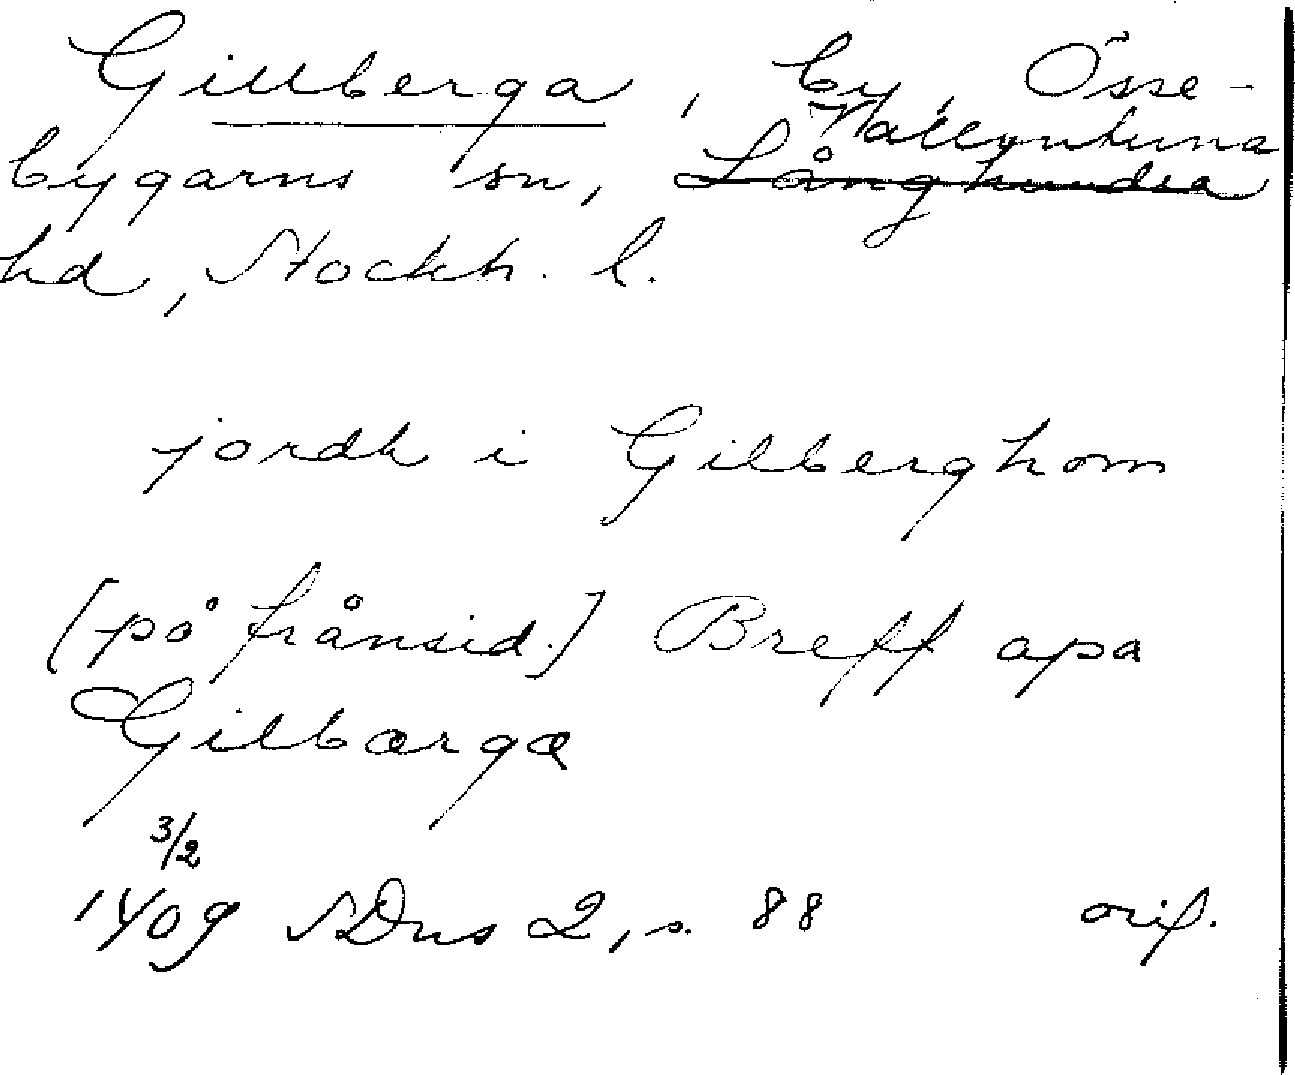 Gillberga, by, Össe-
Vallentuna
bygarns sn, Långhundra
hd, Stockh. l.
jordh i Gilberghom
[på frånsid.] Breff apa
Gilbærgæ
3/2
1409 SDns 2, s. 88 orig.